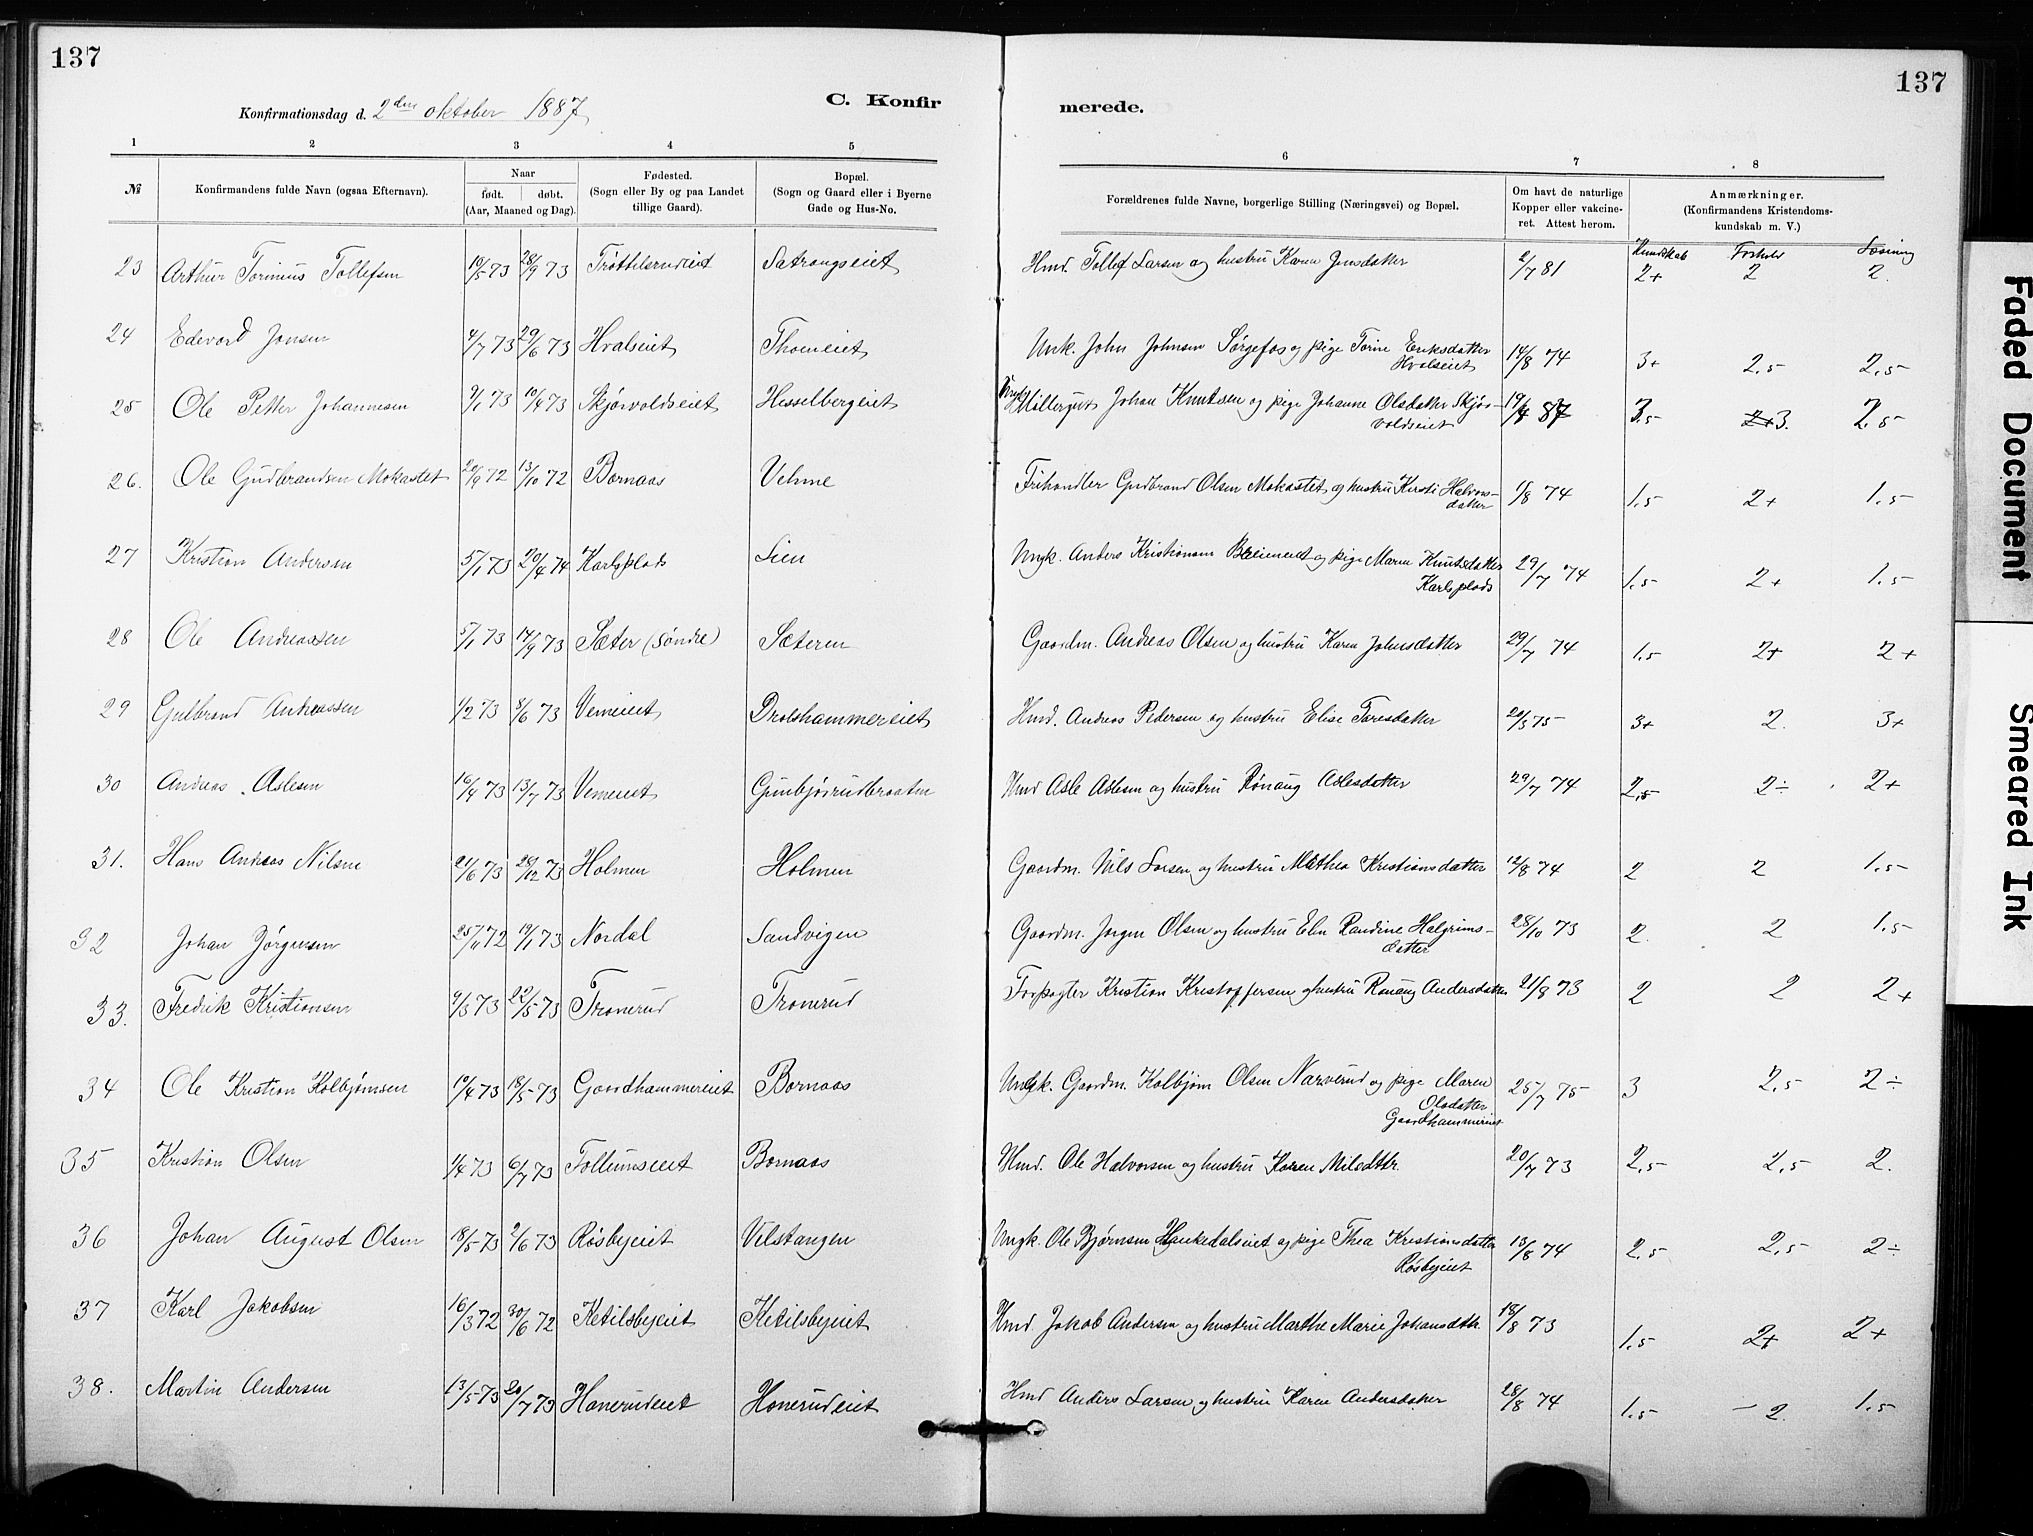 137
137
Konfirmationsdag d. 2den oktober 1887
C. Konfirmerede.
1 2 3 4 5 6 7 8
№ Konfirmandens fulde Navn (ogsaa Efternavn). Naar født. døbt. (Aar, Maaned og Dag). Fødested. (Sogn eller By og paa Landet tillige Gaard). Bopæl. (Sogn og Gaard eller i Byerne Gade og Hus-No. Forældrenes fulde Navne, borgerlige Stilling (Næringsvei) og Bopæl. Om havt de naturlige Kopper eller vakcineret. Attest herom. Anmærkninger. (Konfirmandens Kristendomskundskab m. V.)
Kundskab Forhold Læsning
23 Arthur Torinius Tollefsen 19/5 73 28/9 73 Trottilerudeiet Satrangseiet Hmd. Tollef Larsen og hustru Karen Jensdatter 2/7 81 2+ 2 2.
24 Edevard Jonsen 4/7 73 29/6 73 Hvalseiet Thomeiet Unk. John Johnsen Sørgefos og pige Torine Eriksdatter Hvalseiet 14/8 74 3+ 2,5 2,5
25 Ole Petter Johannesen 9/1 73 10/4 73 Skjørvoldseiet Hesselbergeiet Ungk. Møllergut Johan Knutsen og pige Johanne Olsdatter Skjørvoldseiet 19/4 87 3.5 3. 2.5
26. Ole Gudbrandsen Mokastet 20/9 72 13/10 72 Bornaas Velme Frihandler Gudbrand Olsen Mokastet og hustru Kirsti Halvorsdatter 15/8 74 1.5 2+ 1.5
27 Kristian Andersen 5/1 73 20/4 74 Karlsplads Lien Ungk. Anders Kristiansen Breieneiet og pige Maren Knutsdatter Karlsplads 29/7 74 1.5 2+ 1.5
28 Ole Andreassen 5/1 73 14/9 73 Sæter (søndre) Sæteren Gaardm. Andreas Olsen og hustru Karen Johnsdatter 29/7 74 1.5 2+ 2+
29 Gulbrand Andreassen 1/2 73 8/6 73 Vemeiet Drolshammereiet Hmd. Andreas Pedersen og hustru Elise Toresdatter 20/3 75 3+ 2. 3+
30 Andreas Aslesen 16/4 73 13/7 73 Vemeiet Gunbjørrudbraaten Hmd Asle Aslesen og hustru Rønaug Aslesdatter 29/7 74 2,5 2÷ 2+
31. Hans Andreas Nilsen 21/6 73 28/12 73 Holmen Holmen Gaardm. Nils Larsen og hustru Mathea Kristiansdatter 12/8 74 2 2 1.5
32 Johan Jørgensen 25/11 72 19/1 73 Nordal Sandvigen Gaardm. Jørgen Olsen og hustru Elen Randine Halgrimsdatter 28/10 73 2. 2 1.5
33. Fredrik Kristiansen 9/3 73 22/5 73 Tronerud Tronerud Forpagter Kristian Kristoffersen og hustru Rønaug Andersdatter 21/8 73 2 2 2+
34 Ole Kristian Kolbjørnsen 10/4 73 18/5 73 Gaardhammereiet Bornaas Ungk. Gaardm. Kolbjørn Olsen Narverud og pige Maren Olsdatter Gaardhammereiet 25/7 75 3 2.5 2÷
35 Kristian Olsen 1/4 73 6/7 73 Follumseiet Bornaas Hmd. Ole Halvorsen og hustru Karen Nilsdttr. 20/7 73 2,5 2,5 2.
36 Johan August Olsen 18/5 73 2/6 73 Røsbyeiet Velstangen Ungk. Ole Bjørnsen Hankedalseiet og pige Thea Kristiansdatter Røsbyeiet 13/8 74 2,5 2,5 2÷
37 Karl Jakobsen 16/3 72 30/6 72 Ketilsbyeiet Ketilsbyeiet Hmd. Jakob Andersen og hustru Marthe Marie Johansdttr. 18/8 73 1.5 2+ 2+
38. Martin Andersen 13/5 73 20/7 73 Honerudeiet Honerudeiet Hmd Anders Larsen og hustru Karen Andersdatter 28/8 74 1.5 2. 1.5
Faded Document
Smeared Ink